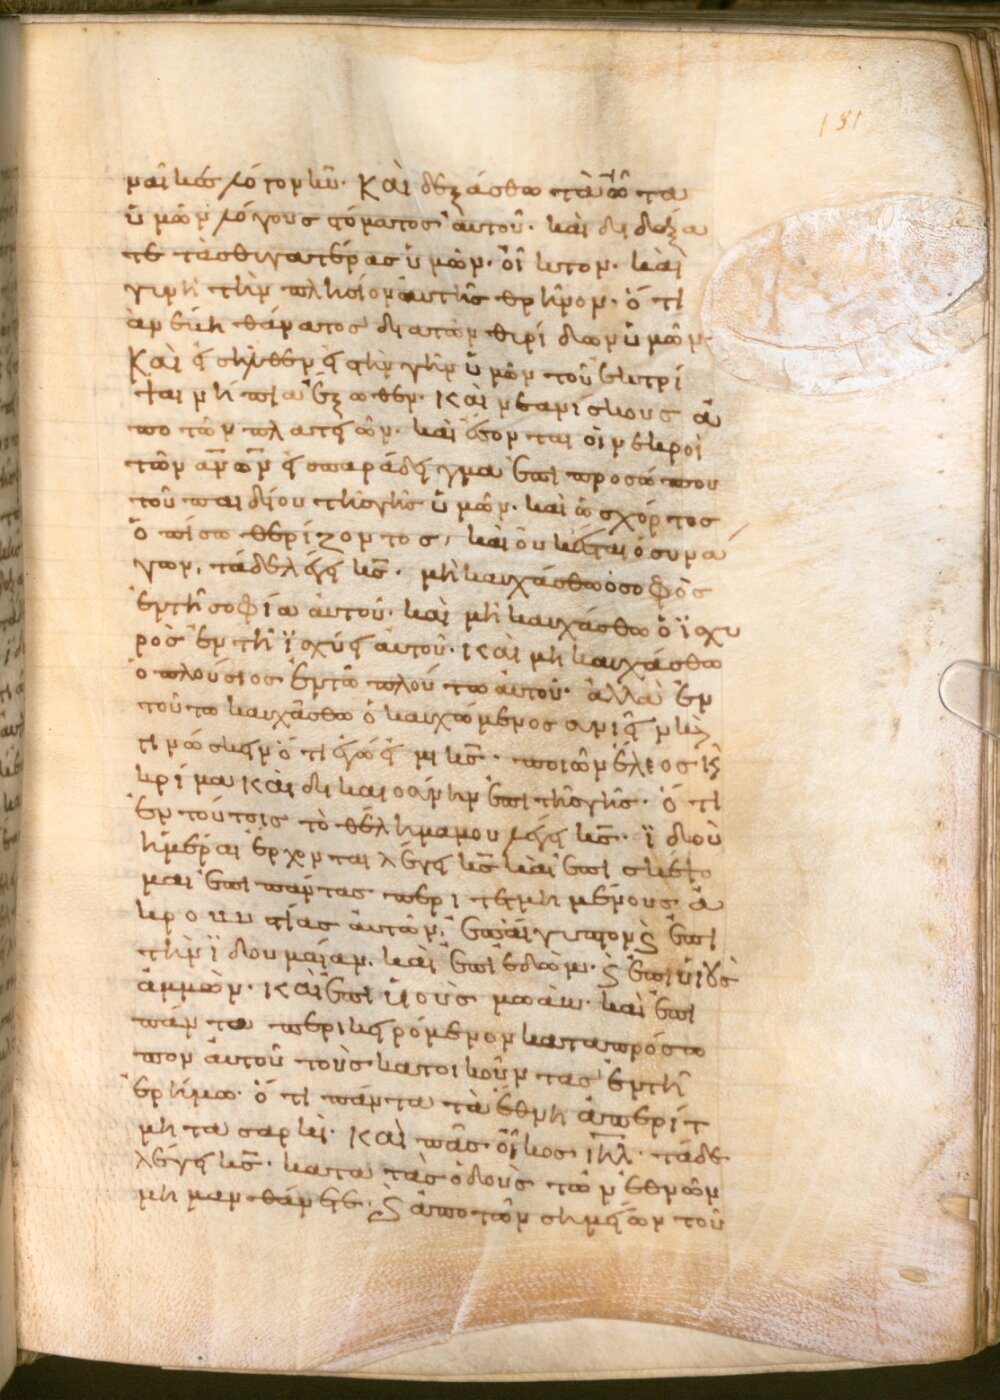 181
ναῖκες λόγον κυ· Καὶ δεξάσθω τὰ ὦτα
ὑμῶν λόγους στόματος αὐτοῦ· καὶ διδάξα
τε τὰς θυγατέρας ὑμῶν· οἶκτον· καὶ
γυνὴ τὴν πλησίον αυτῆς θρῆνον· ὅτι
ἀνέβη θάνατος διατῶν θυρίδων ὑμῶν·
Καὶ εἰσῆλθεν εἰς τὴν γῆν ὑμῶν τοῦ ἐκτρί
ψαι νήπια ἔξωθεν· Καὶ νεανίσκους ἀ
πο τῶν πλατειῶν· καὶ ἔσονται οἱ νεκροὶ
τῶν ανων εἰς παράδειγμα ἐπι προσώπου
τοῦ παιδίου τῆς γῆς ὑμῶν· καὶ ὡς χόρτος
ὀπίσω θερίζοντος, καὶ ουκ ἔσται ὁ συνά
γων, τάδε λέγει κς· μὴ καυχάσθω ὁ σοφὸς
ἐν τῇ σοφία αὐτοῦ· καὶ μὴ καυχάσθω ὁ ἰσχυ
ρὸς ἐν τῇ ἰσχύει αὐτοῦ· Καὶ μὴ καυχάσθω
ὁ πλούσιος ἐν τῶ πλούτω αὐτοῦ· ἀλλὰ ἐν
τούτω καυχάσθω ὁ καυχώμενος συνιεῖν κ
γινώσκειν ὅτι ἐγώ εἰμι κς· ποιῶν ἔλεος κ
κρίμα καὶ δικαιοσύνην ἐπὶ τῆς γῆς· ὅτι
ἐν τούτοις τὸ θέλημα μου λέγει κς· ἰδιοὺ
ἡμέραι ἔρχονται λέγει κς καὶ ἐπισκέψο
μαι ἐπι πάντας περιτετμημένους ἀ
κροβυστίας ἀυτῶν, ἐπ αἴγυπτον κ ἐπι
τὴν ἰδουμαίαν. καὶ ἐπὶ ἐδὼμ· κ ἐπι ὑιοὺς
ἀμμὼν· Καὶ ἐπι ὑιοὺς μωὰβ· καὶ ἐπι
πάντα περικειρόμενον κατα πρόσω
πον αὐτοῦ τοὺς κατοικοῦντας ἐν τῇ
ἐρήμω· ὅτι πάντα τὰ ἔθνη ἀπερίτ
μητα σαρκὶ· Καὶ πᾶς οἶκος ιηλ· τάδε
λέγει κς· κατα τὰς ὁδοὺς τῶν ἐθνῶν
μὴ μανθάνετε· κ ἀπο τῶν σημείων τοῦ